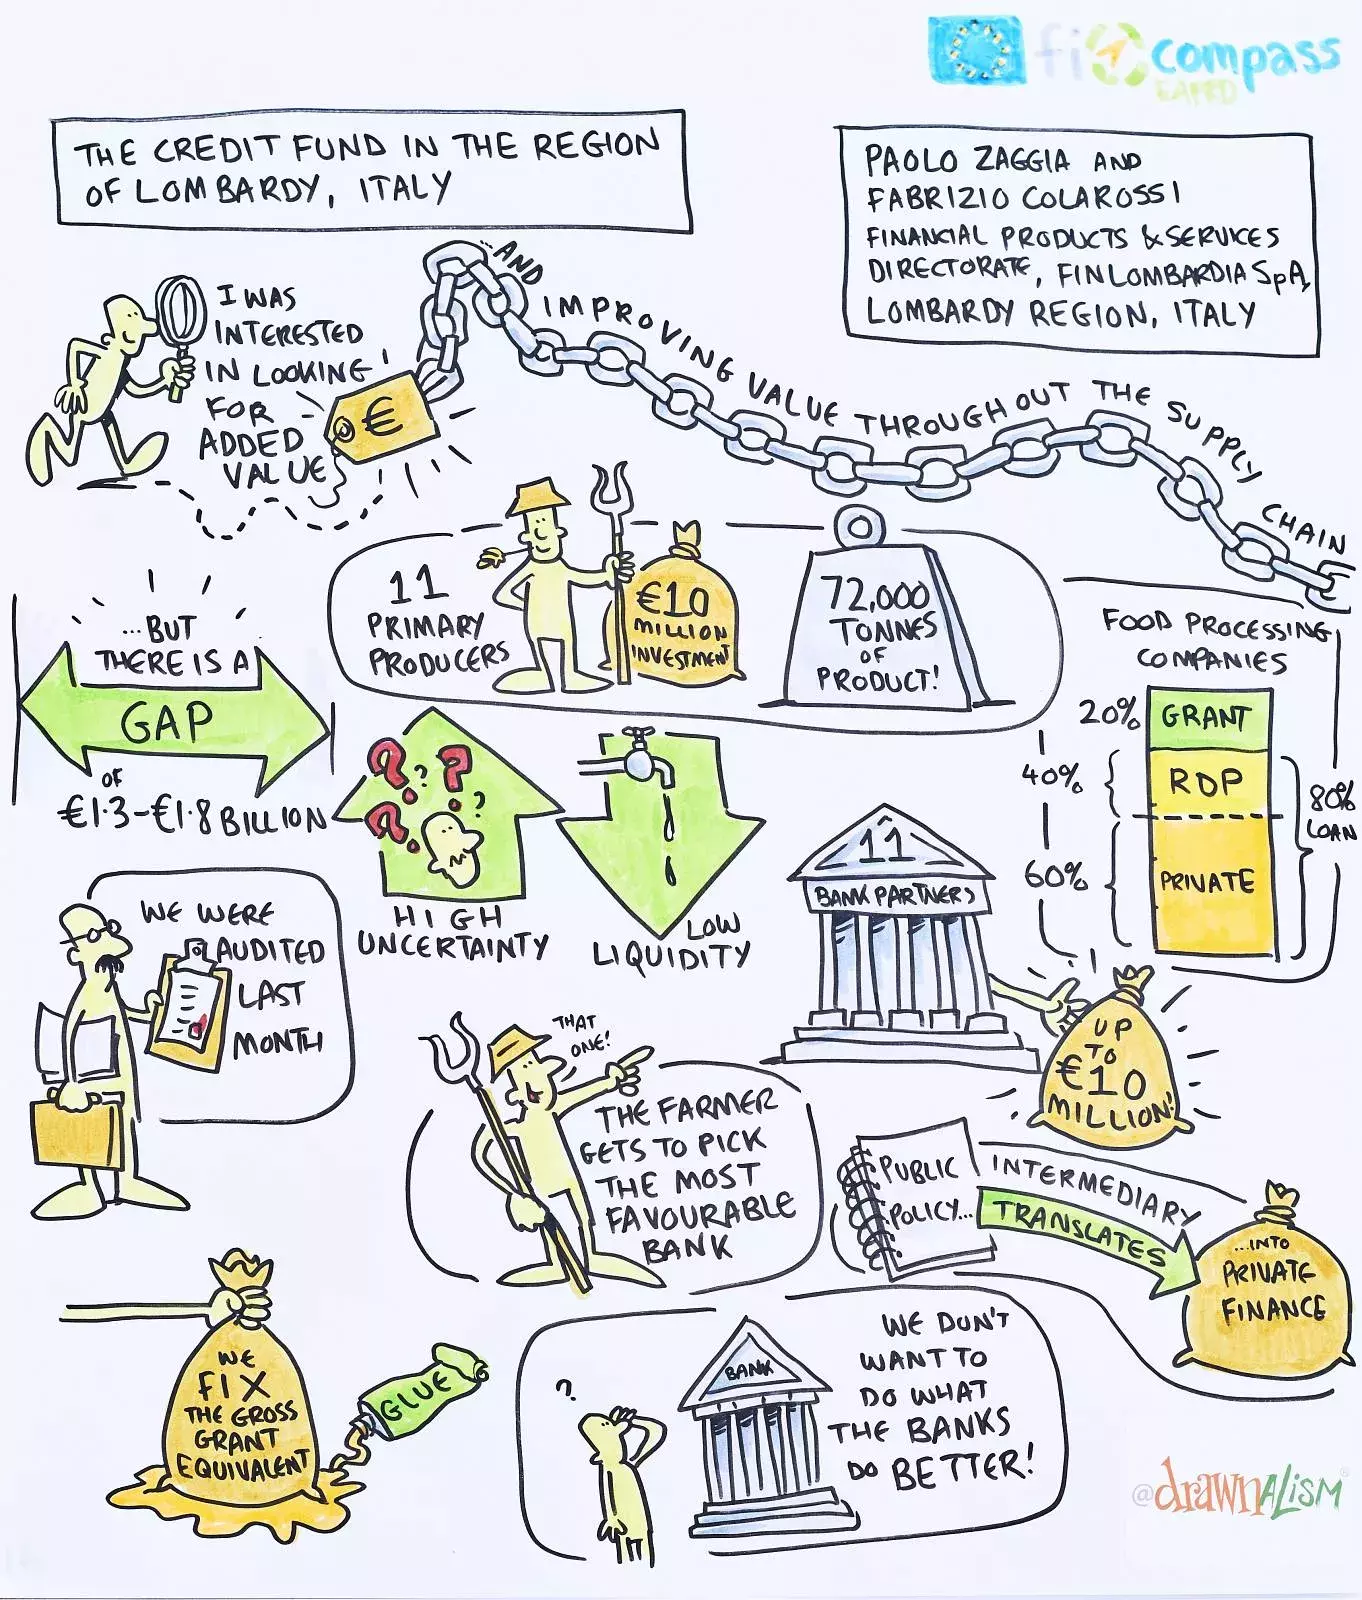 fi compass
EAFRD
THE CREDIT FUND IN THE REGION
OF LOMBARDY, ITALY
PAOLO ZAGGIA AND
FABRIZIO COLAROSSI
FINANCIAL PRODUCTS & SERVICES
DIRECTORATE, FINLOMBARDIA SpA,
LOMBARDY REGION, ITALY
I WAS
INTERESTED
IN LOOKING
FOR
ADDED
VALUE
€
...AND IMPROVING VALUE THROUGHOUT THE SUPPLY CHAIN
11
PRIMARY
PRODUCERS
€10
MILLION
INVESTMENT
72,000
TONNES
OF
PRODUCT!
...BUT
THERE IS A
GAP
OF
€1.3-€1.8 BILLION
? ? ? ? ?
HIGH
UNCERTAINTY
LOW
LIQUIDITY
FOOD PROCESSING
COMPANIES
20% GRANT
40% RDP
60% PRIVATE
80%
LOAN
11
BANK PARTNERS
UP
TO
€10
MILLION!
WE WERE
AUDITED
LAST
MONTH
THAT
ONE!
THE FARMER
GETS TO PICK
THE MOST
FAVOURABLE
BANK
PUBLIC
POLICY...
INTERMEDIARY
TRANSLATES
...INTO
PRIVATE
FINANCE
WE
FIX
THE GROSS
GRANT
EQUIVALENT
GLUE
?
BANK
WE DON'T
WANT TO
DO WHAT
THE BANKS
DO BETTER!
@drawnALISM®